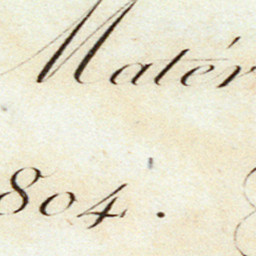 Matér
804.